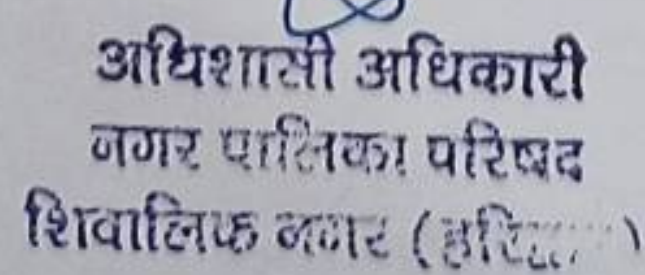 अधिशासी अधिकारी
नगर पालिका परिषद
शिवालिक नगर